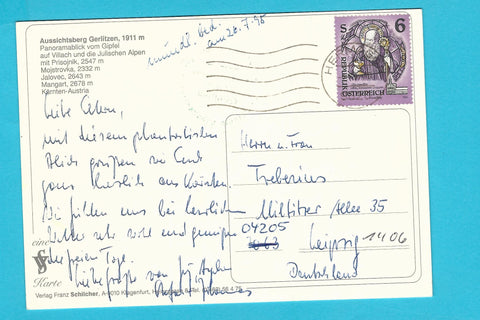 Aussichtsberg Gerlitzen, 1911 m
Panoramablick vom Gipfel
auf Villach und die Julischen Alpen
mit Prisojnik, 2547 m
Mojstrovka, 2332 m
Jalovec, 2643 m
Mangart, 2678 m
Kärnten-Austria
am 26.7.95
S 6
REPUBLIK
ÖSTERREICH
HE
Liebe
mit diesem phantastischen
Blick grüßen wir Euch
ganz herzlich aus Kärnten.
Wir fühlen uns bei herrlichem
Wetter sehr wohl und genießen
die freien Tage.
Liebe Grüße von
Herrn u. Frau
Treberius
Miltitzer Allee 35
04205
7063 Leipzig 1406
Deutschland
eine
VS
Karte
Verlag Franz Schilcher, A-9010 Klagenfurt,